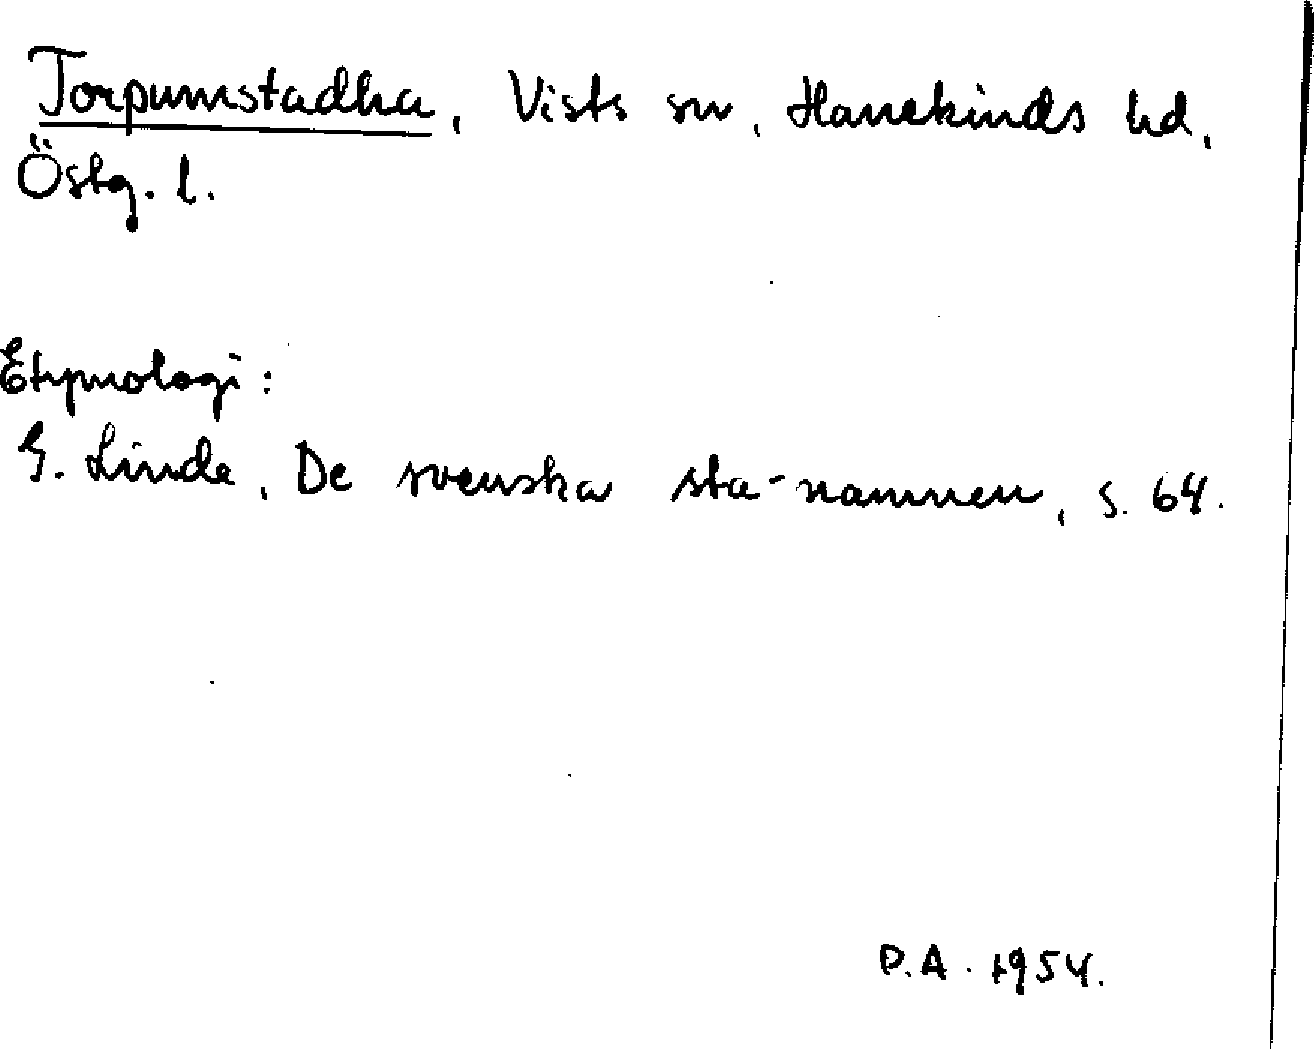 Torpumstadha, Vists sn, Hanekinds hd,
Östg. l.
Etymologi:
G. Linde, De svenska sta-namnen, s. 64.
D.A. 1954.